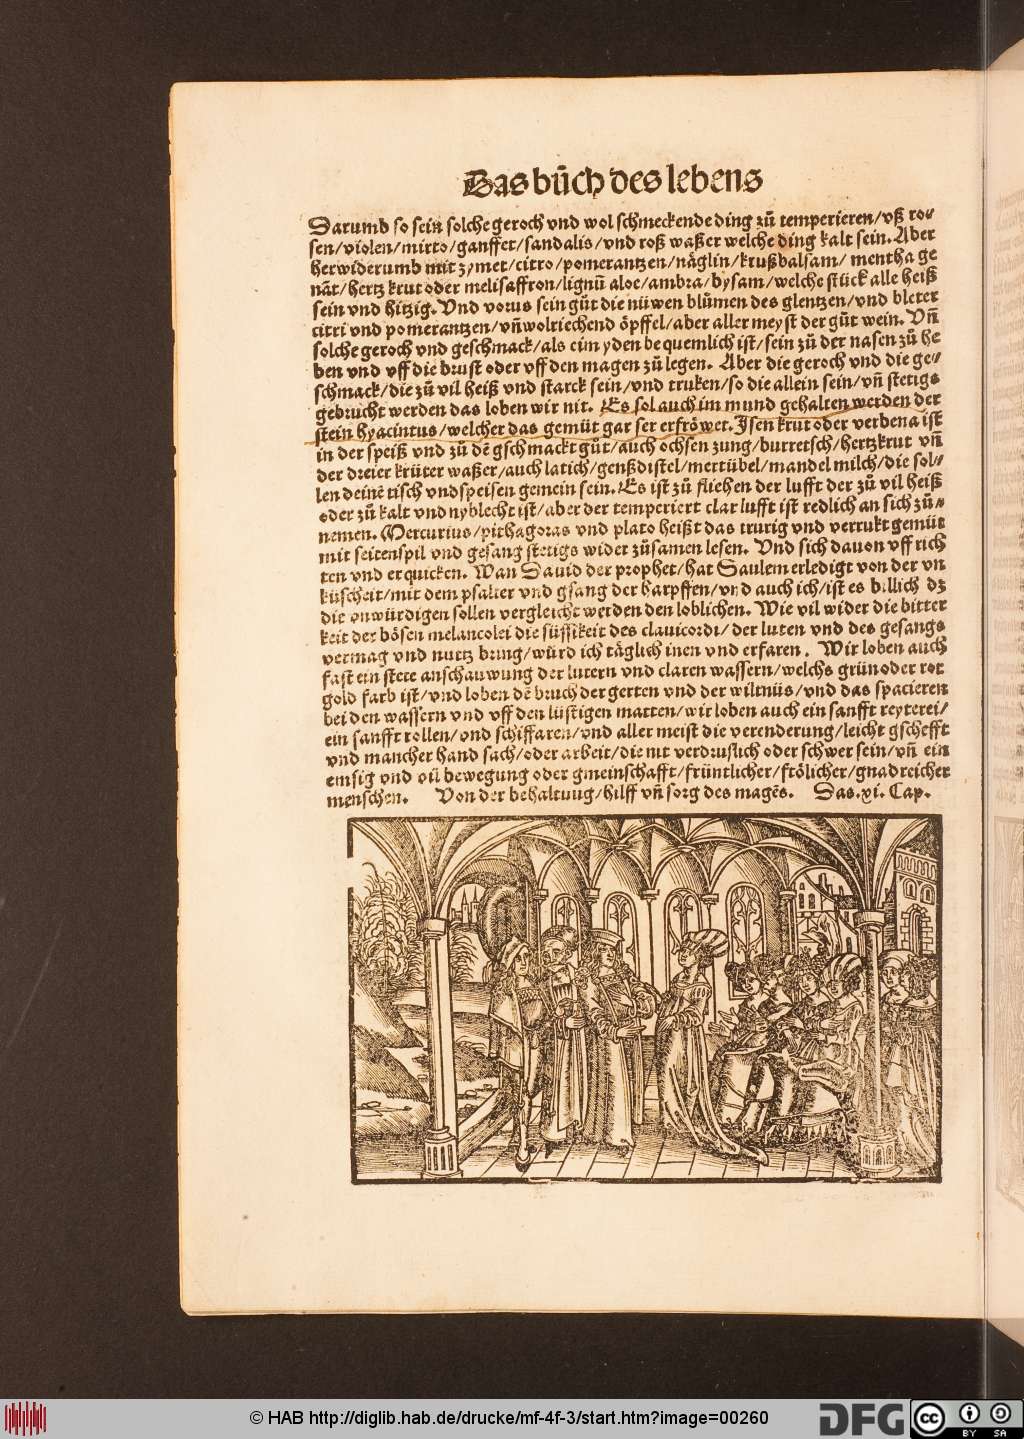 Das bůch des lebens
Darumb so sein solche geroch vnd wol schmeckende ding zů temperieren/vß ro⸗
sen/violen/mirto/ganffer/sandalis/vnd roß waßer welche ding kalt sein. Aber
herwiderumb mit zymet/citro/pomerantzen/näglin/krußbalsam/ mentha ge
nāt/hertz krut oder melisaffron/lignū aloe/ambra/bysam/welche stück alle heiß
sein vnd hitzig. Vnd vorus sein gůt die nüwen blůmen des glentzen/vnd bleter
citri vnd pomerantzen/vn̄ wolriechend öpffel/aber aller meyst der gůt wein. Vn̄
solche geroch vnd geschmack/als eim yden bequemlich ist/sein zů der nasen zů he
ben vnd vff die brust oder vff den magen zů legen. Aber die geroch vnd die ge⸗
schmack/die zů vil heiß vnd starck sein/vnd truken/so die allein sein/vn̄ stetigs
gebrucht werden das loben wir nit. Es sol auch im mund gehalten werden der
stein hyacintus/welcher das gemüt gar ser erfröwet. Isen krut oder verbena ist
in der speiß vnd zů dē gschmackt gůt/auch ochsen zung/burretsch/hertzkrut vn̄
der dreier krüter waßer/auch latich/genßdistel/mertübel/mandel milch/die sol⸗
len deinē tisch vnd speisen gemein sein. Es ist zů fliehen der lufft der zů vil heiß
oder zů kalt vnd nyblecht ist/aber der temperiert clar lufft ist redlich an sich zů⸗
nemen. Mercurius/pithagoras vnd plato heißt das trurig vnd verrukt gemüt
mit seitenspil vnd gesang stetigs wider zůsamen lesen. Vnd sich dauon vff rich
ten vnd erquicken. Wan Dauid der prophet/hat Saulem erledigt von der vn
küscheit/mit dem psalter vnd gsang der harpffen/vnd auch ich/ist es billich dz
die vnwürdigen sollen vergleicht werden den loblichen. Wie vil wider die bitter
keit der bösen melancolei die süssikeit des clauicordi/der luten vnd des gesangs
vermag vnd nutz bring/würd ich täglich inen vnd erfaren. Wir loben auch
fast ein stete anschauwung der lutern vnd claren wassern/welchs grün oder rot
gold farb ist/vnd loben dē bruch der gerten vnd der wiltnüs/vnd das spacieren
bei den wassern vnd vff den lüstigen matten/wir loben auch ein sanfft reyterei/
ein sanfft rollen/vnd schiffaren/vnd aller meist die verenderung/leicht gschefft
vnd mancher hand sach/oder arbeit/die nit verdruslich oder schwer sein/vn̄ ein
emsig vnd oü bewegung oder gmeinschafft/früntlicher/frölicher/gnadreicher
menschen. Von der behaltuug/hilff vn̄ sorg des magēs. Das .xi. Cap.
© HAB http://diglib.hab.de/drucke/mf-4f-3/start.htm?image=00260
DFG cc BY SA